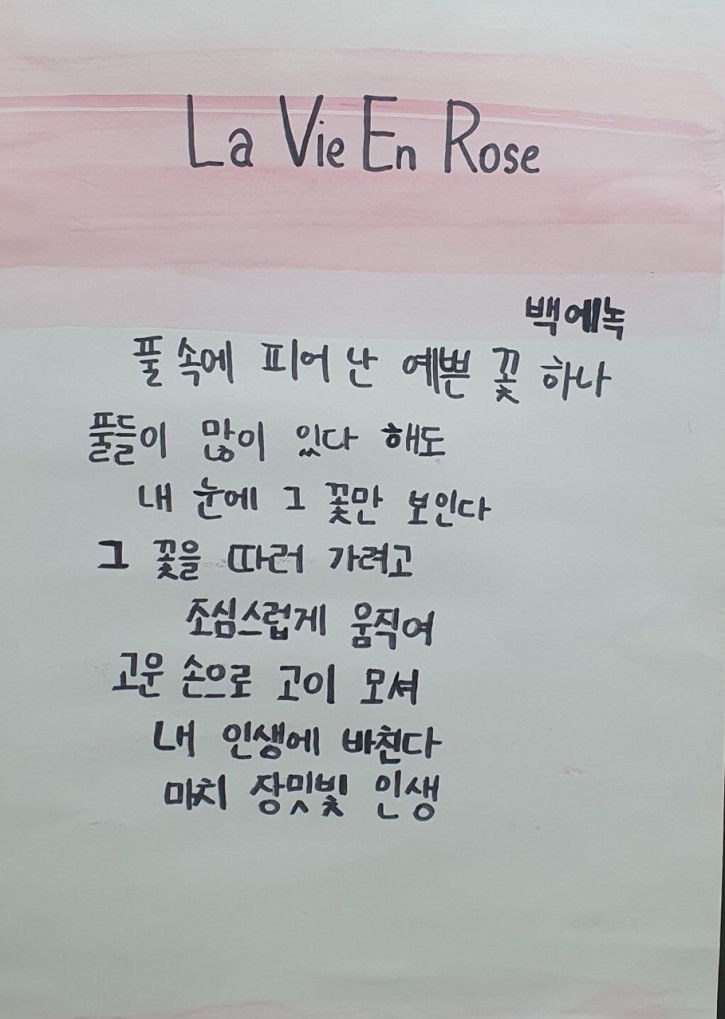 La Vie En Rose
백에녹
풀 속에 피어 난 예쁜 꽃 하나
풀들이 많이 있다 해도
내 눈에 그 꽃만 보인다
그 꽃을 따러 가려고
조심스럽게 움직여
고운 손으로 고이 모셔
내 인생에 바친다
마치 장밋빛 인생